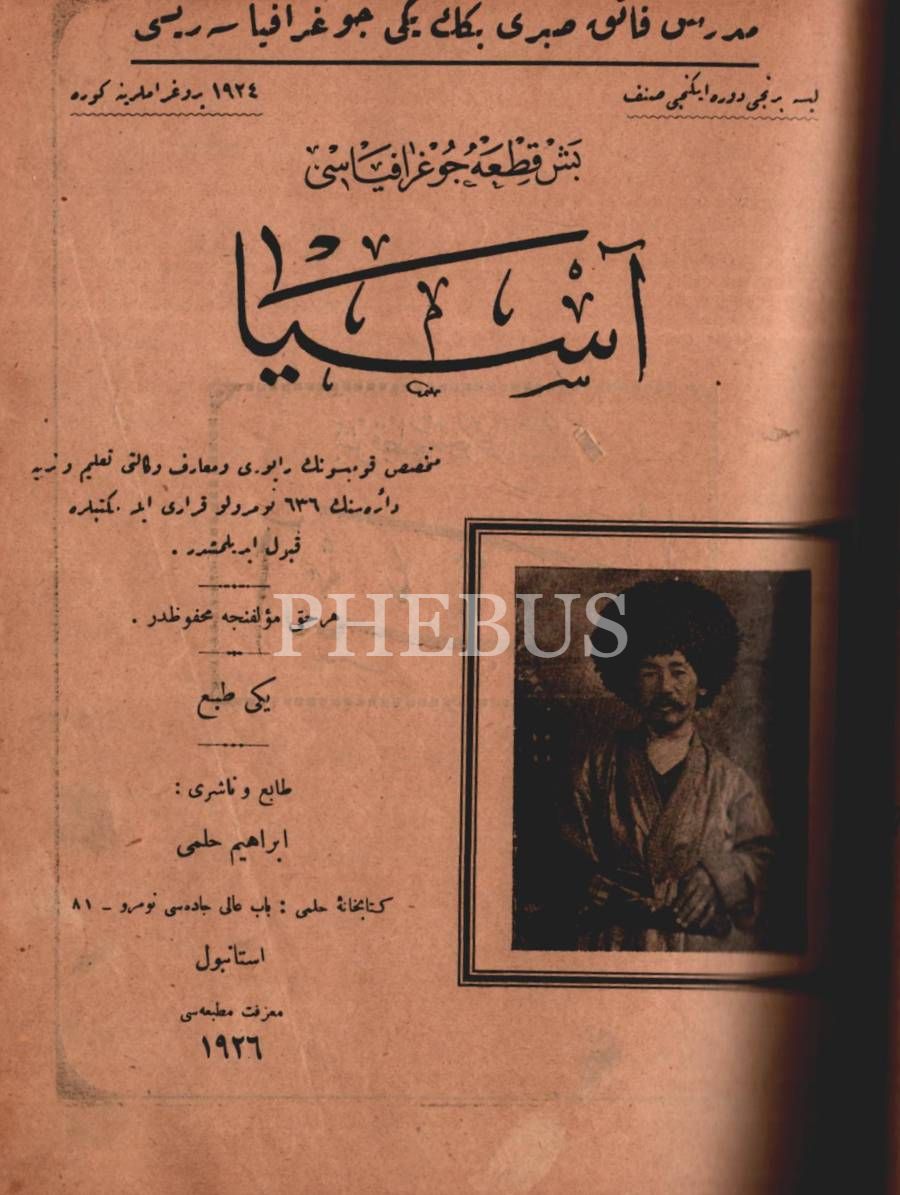 مدرس فائق صبری بكك یكی جوغرافیا سریسی
لیسه برنجی دوره ایكنجی صنف
١٩٢٤ پروغراملرینه كوره
بَشْ قِطْعَهْ جُوغْرَافْیَاسْی
آسیا
متخصص قومیسونك راپوری و معارف وكالتی تعلیم و تربیه
دائره‌سنك ٦٣٦ نومرولو قراری ایله مكتبلره
قبول ایدیلمشدر .
هر حق مؤلفنجه محفوظدر .
PHEBUS
یكی طبع
طابع و ناشری :
ابراهیم حلمی
كتابخانهٔ حلمی : باب عالی جاده‌سی نومرو ـ ٨١
استانبول
معرفت مطبعه‌سی
١٩٢٦